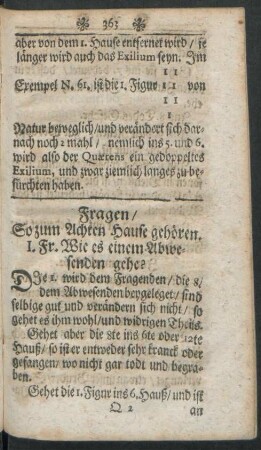 36:
aber von dem 1. Hause entfernet wird / je
länger wird auch das Exilium seyn. Im
I I
Exempel N. 61. ist die 1. Figur I I von
I I
I
Natur beweglich / und verändert sich dar-
nach noch 2 mahl / nemlich ins 5. und 6.
wird also der Quærens ein gedoppeltes
Exilium, und zwar ziemlich langes zu be-
fürchten haben.
Fragen /
So zum Achten Hause gehören.
I. Fr. Wie es einem Abwe-
senden gehe?
DIe 1. wird dem Fragenden / die 8.
dem Abwesenden beygeleget / sind
selbige gut und verändern sich nicht / so
gehet es ihm wohl / und widrigen Theils.
Gehet aber die 8te ins 6te oder 12te
Hauß / so ist er entweder sehr kranck oder
gefangen / wo nicht gar todt und begra-
ben.
Gehet die 1. Figur ins 6. Hauß / und ist
Q 2 an